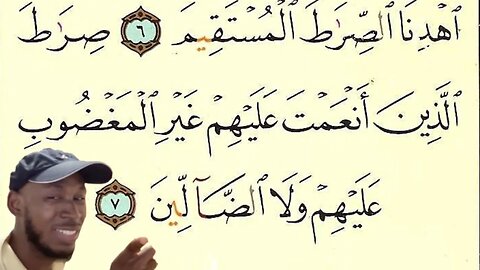 ٱهۡدِنَا ٱلصِّرَٰطَ ٱلۡمُسۡتَقِيمَ ٦ صِرَٰطَ
ٱلَّذِينَ أَنۡعَمۡتَ عَلَيۡهِمۡ غَيۡرِ ٱلۡمَغۡضُوبِ
عَلَيۡهِمۡ وَلَا ٱلضَّآلِّينَ ٧